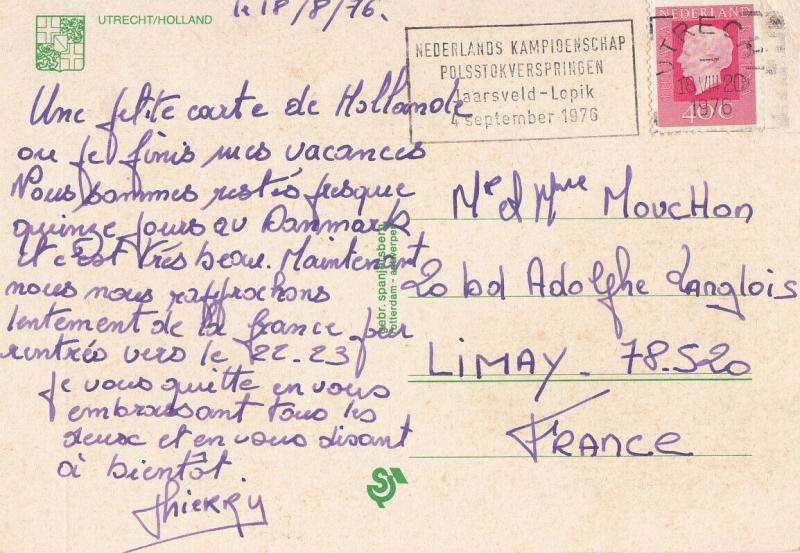 UTRECHT/HOLLAND
le 18/8/76.
NEDERLANDS KAMPIOENSCHAP
POLSSTOKVERSPRINGEN
Jaarsveld-Lopik
4 september 1976
NEDERLAND
UTRECHT
18 VIII 20
1976
40/6
Une petite carte de Hollande
ou je finis mes vacances
Nous sommes restés presque
quinze jours au Danmark
et c'est très beau. Maintenant
nous nous rapprochons
lentement de la france pour
rentrés vers le 22.23
je vous quitte en vous
embrassant tous les
deux et en vous disant
à bientôt.
Thierry
Mr et Mme MOUCHON
20 bd Adolphe Langlois
LIMAY - 78.520
FRANCE
gebr. spanjersberg
rotterdam - antwerpen